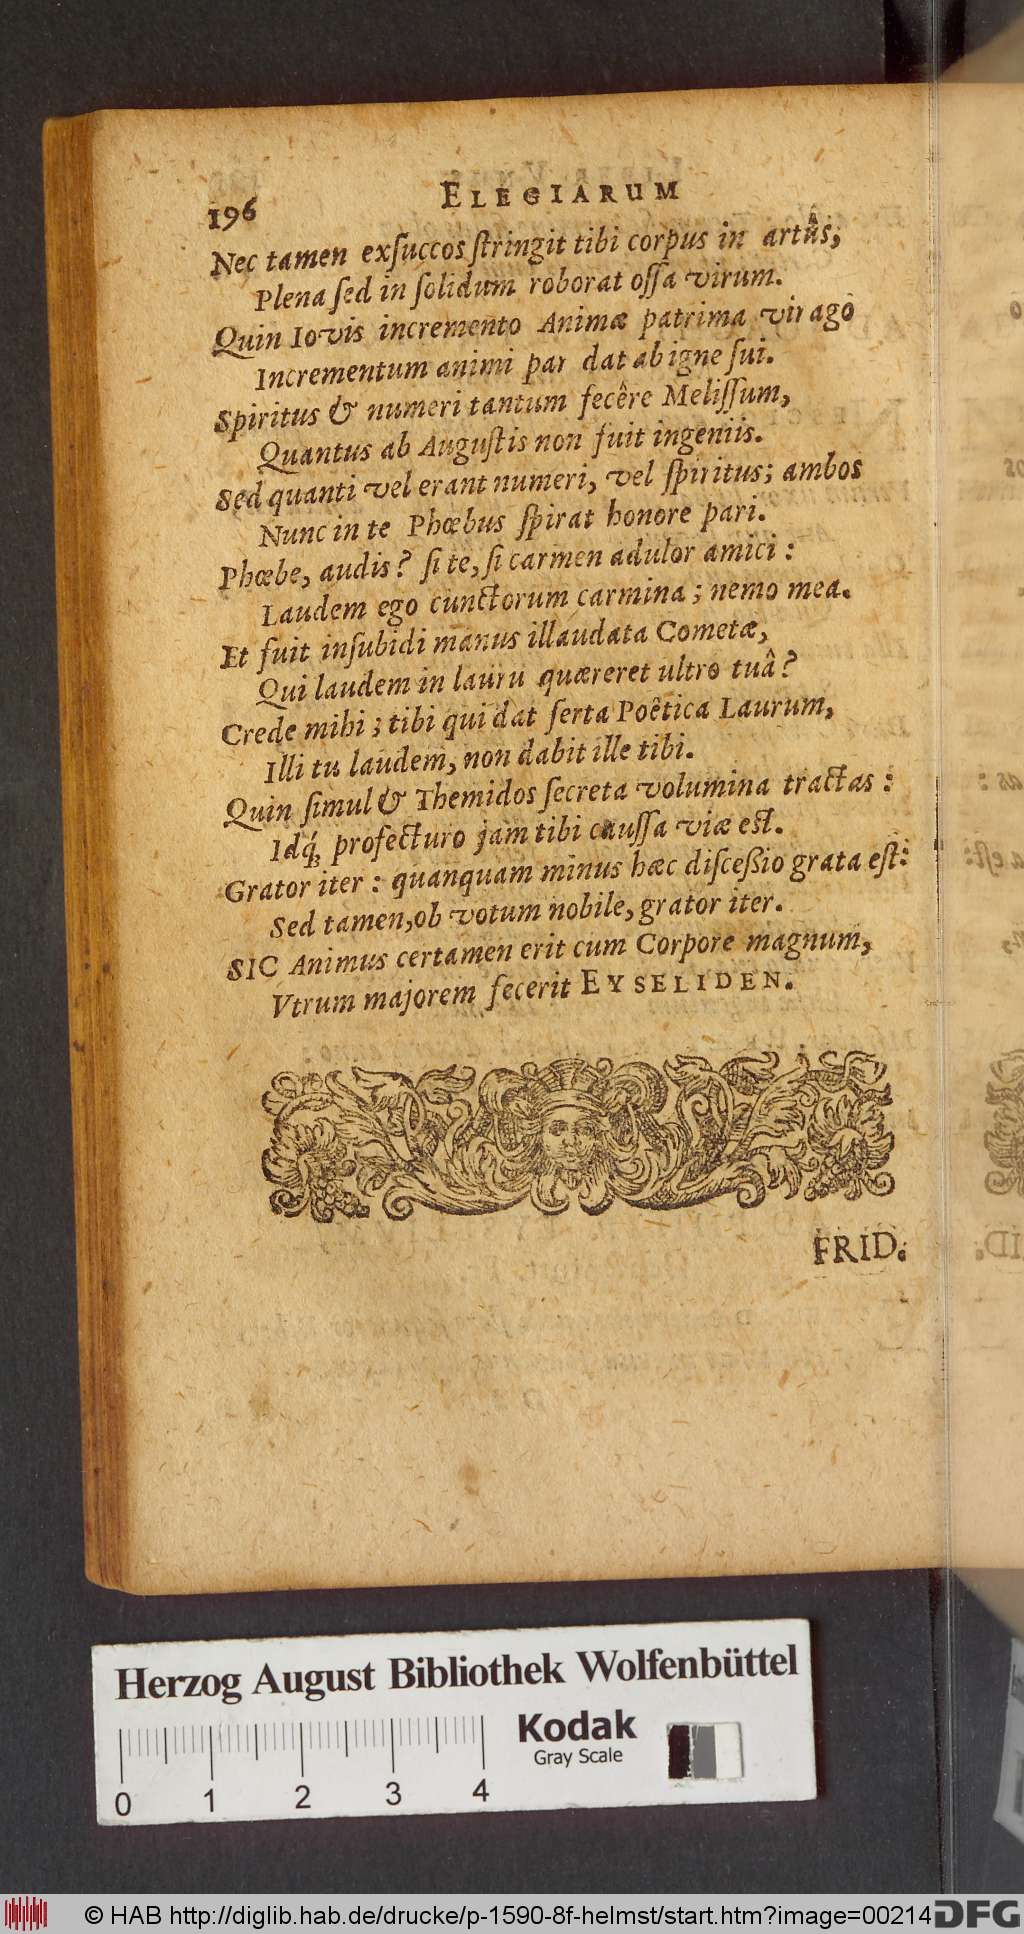 196 ELEGIARUM
Nec tamen exſuccos ſtringit tibi corpus in artûs;
Plena ſed in ſolidum roborat oſſa virum.
Quin Iovis incremento Animæ patrima virago
Incrementum animi par dat ab igne ſui.
Spiritus & numeri tantum fecêre Meliſſum,
Quantus ab Auguſtis non fuit ingeniis.
Sed quanti vel erant numeri, vel ſpiritus; ambos
Nunc in te Phœbus ſpirat honore pari.
Phœbe, audis? ſi te, ſi carmen adulor amici:
Laudem ego cunctorum carmina; nemo mea.
Et fuit inſubidi manus illaudata Cometæ,
Qui laudem in lauru quæreret ultro tuâ?
Crede mihi; tibi qui dat ſerta Poêtica Laurum,
Illi tu laudem, non dabit ille tibi.
Quin ſimul & Themidos ſecreta volumina tractas:
Idq́ꝫ profecturo jam tibi cauſſa viæ est.
Grator iter: quanquam minus hæc diſceßio grata eſt:
Sed tamen, ob votum nobile, grator iter.
SIC Animus certamen erit cum Corpore magnum,
Vtrum majorem fecerit EYSELIDEN.
FRID.
Herzog August Bibliothek Wolfenbüttel
Kodak
Gray Scale
0 1 2 3 4
© HAB http://diglib.hab.de/drucke/p-1590-8f-helmst/start.htm?image=00214
DFG